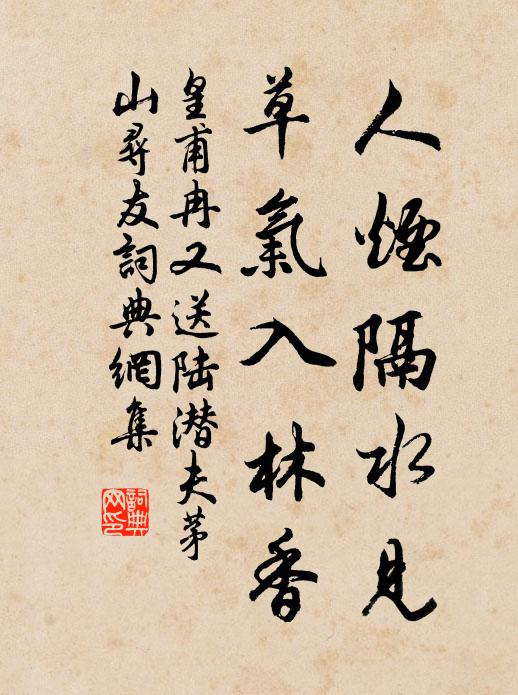 人煙隔水見
草氣入林香
皇甫冉又送陆潜夫茅
山尋友詞典網集
詞典网印